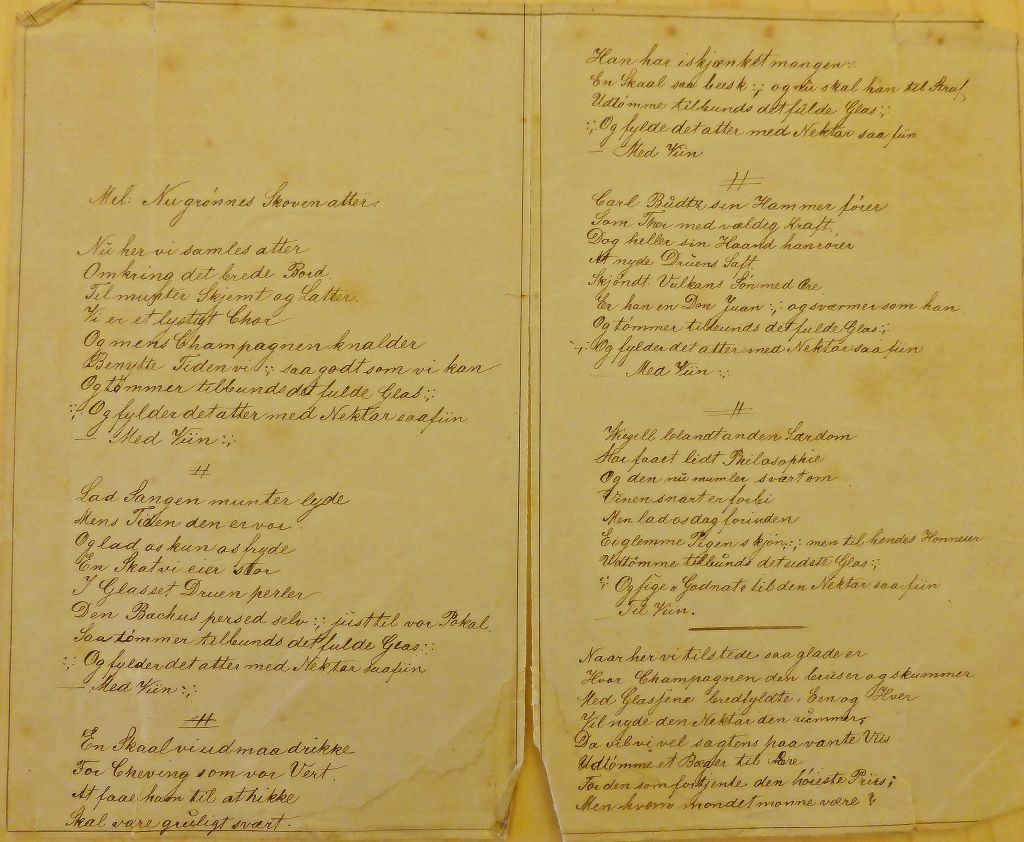 Mel: Nu grønnes Skoven atter.
Nu her vi samles atter
Omkring det brede Bord.
Til munter Skjemt og Latter.
Vi er et lystigt Chor
Og mens Champagnen knalder
Benytte Tiden vi :,: saa godt som vi kan
Og tømmer tilbunds det fulde Glas :,:
:,: Og fylder det atter med Nektar saa fiin
— Med Viin :,:
Lad Sangen munter lyde
Mens Tiden den er vor.
Og lad os kun os fryde
En Skat vi eier stor
I Glasset Druen perler
Den Bachus persed selv :,: just til vor Pokal.
Saa tømmer tilbunds det fulde Glas :,:
:,: Og fylder det atter med Nektar saa fiin
— Med Viin :,:
En Skaal vi ud maa drikke
For Cheving som vor Vert.
At faae ham til at hikke
Skal være gruligt svært.
Han har iskjænket mangen
En Skaal saa beesk :,: og nu skal han til Straf
Udtømme tilbunds det fulde Glas :,:
:,: Og fylde det atter med Nektar saa fiin
— Med Viin
Carl Budtz sin Hammer fører
Som Thor med vældig Kraft.
Dog heller sin Haand han rører
At nyde Druens Saft.
Skjøndt Vulkans Søn med Ære
Er han en Don Juan :,: og sværmer som han
Og tømmer tilbunds det fulde Glas :,:
:,: Og fylder det atter med Nektar saa fiin
— Med Viin :,:
Wiegell blandt anden Lærdom
Har faaet lidt Philosophie
Og den nu mumler svært om
Vinen snart er forbi
Men lad os dog forinden
Ei glemme Pigen skjøn :,: men til hendes Honneur
Udtømme tilbunds det sidste Glas :,:
:,: Og sige Godnat til den Nektar saa fiin
— Til Viin.
Naar her vi tilstede saa glade er
Hvor Champagnen den bruser og skummer
Med Glassene bredfyldte. Een og Hver
Vil nyde den Nektar den rummer,
Da vil vi vel sagtens paa vante Viis
Udtømme et Bæger til Ære
For den som fortjente den høieste Priis;
Men hvem mon det monne være?